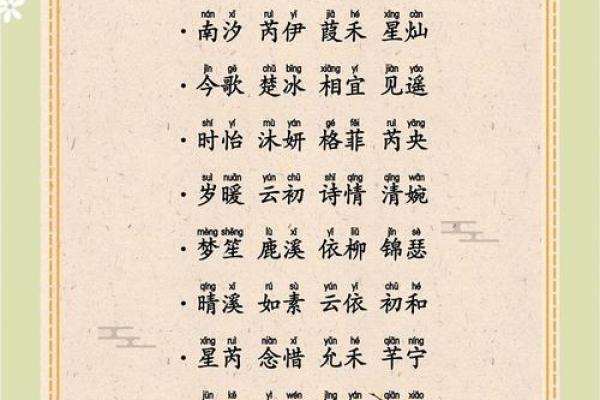 nán xī ruì yī jiā hé xīng càn
· 南汐 芮伊 葭禾 星灿
jīn gē chǔ bīng xiāng yí jiàn yáo
· 今歌 楚冰 相宜 见遥
shí yí mù yán gé fēi ruì yāng
· 时怡 沐妍 格菲 芮央
suì nuǎn yún chū shī qíng qīng wǎn
· 岁暖 云初 诗情 清婉
mèng shēng lù xī yī liǔ jǐn sè
· 梦笙 鹿溪 依柳 锦瑟
qíng xī rú sù yún yī chū hé
· 晴溪 如素 云依 初和
xīng ruì niàn xī yǔn hé qiān níng
· 星芮 念惜 允禾 芊宁
jùn kě yǐ wén jìng yán qiǎn xiǎo